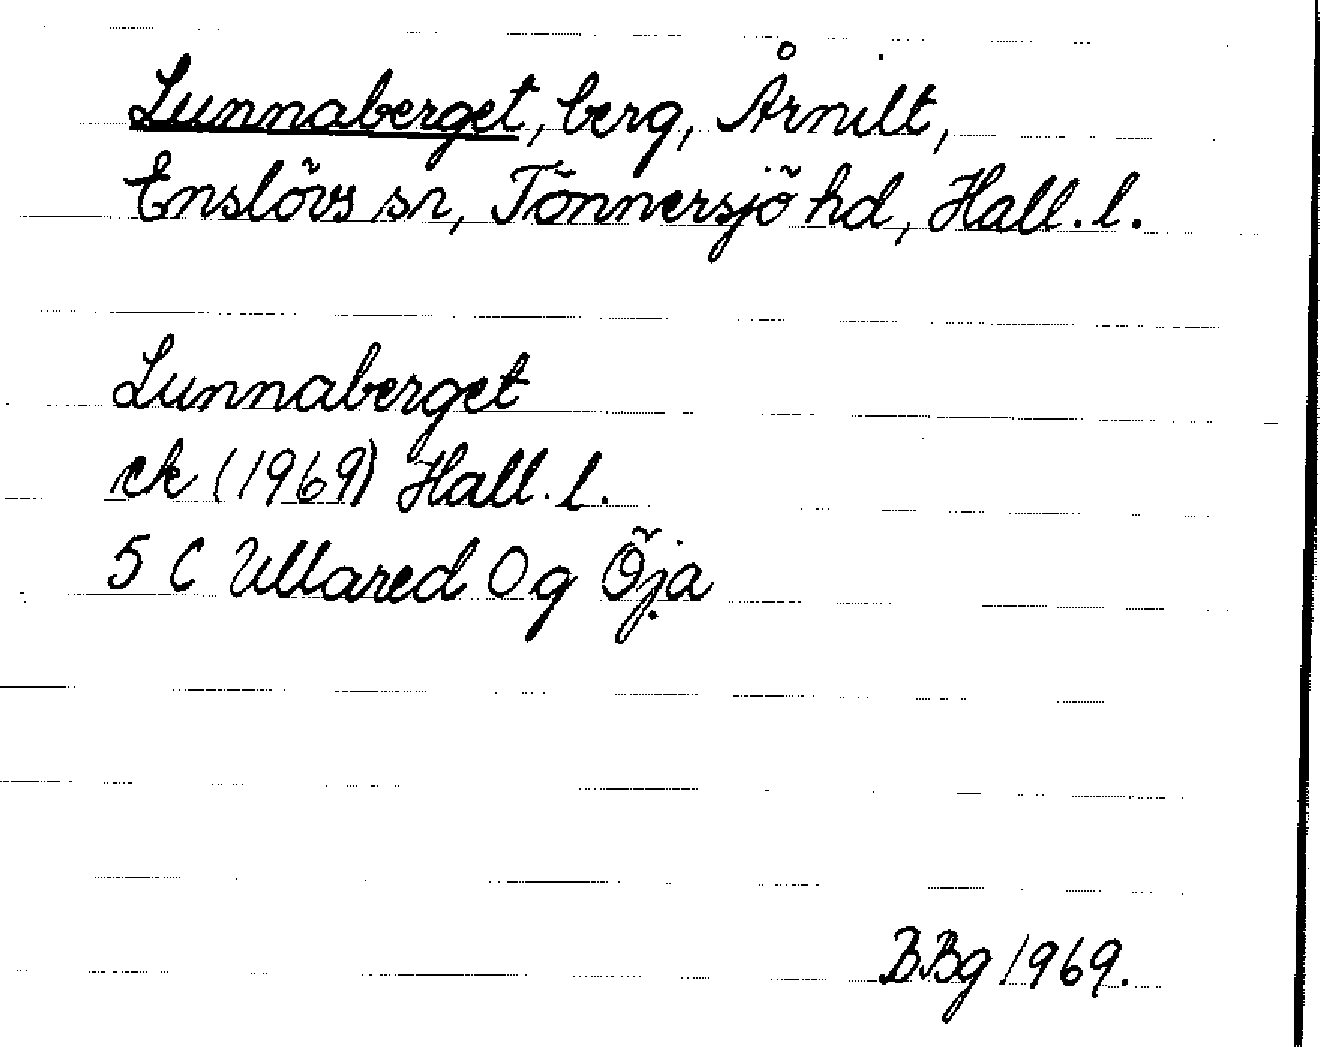 Lunnaberget, berg, Årnilt,
Enslövs sn, Tönnersjö hd, Hall. l.
Lunnaberget
ek (1969) Hall. l.
5 C Ullared 0 g Öja
BBg 1969.